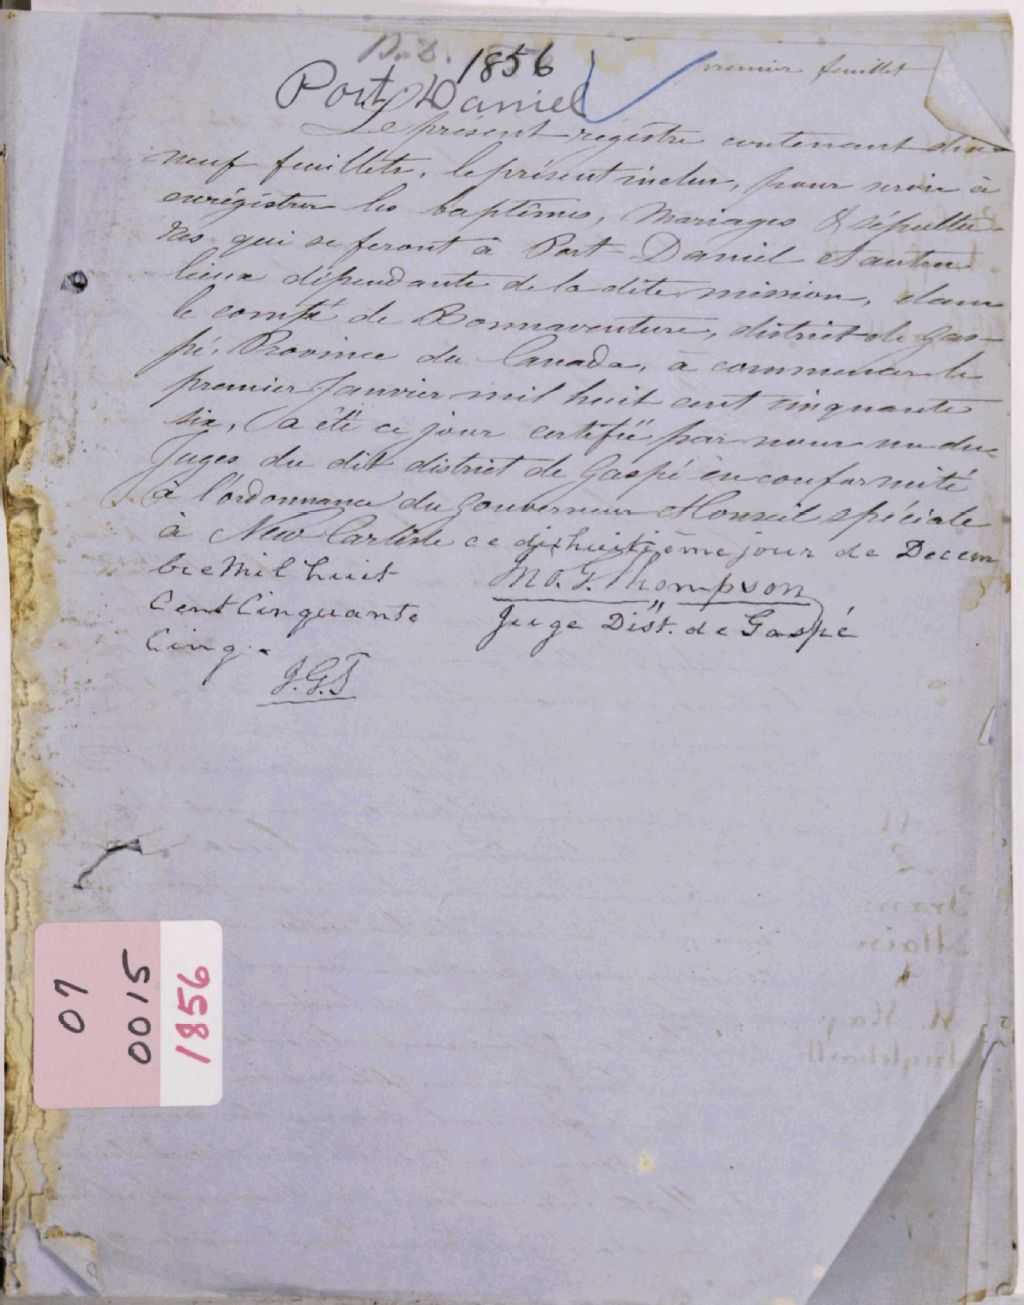 P. D. 1856
premier feuillet
Port Daniel
Le présent régistre contenant dix
neuf feuillets, le présent inclus, pour servir à
enrégistrer les baptêmes, Mariages & sépultu-
res, qui se feront à Port Daniel & autres
lieux dépendants de la dite mission, dans
le comté de Bonnaventure, district de Gas-
pé, Province du Canada, à commencer le
premier Janvier mil huit cent cinquante
six, a été ce jour certifié par nous un des
Juges du dit district de Gaspé en conformité
à l'ordonnance du Gouverneur & Conseil spéciale
à New Carlisle ce dixhuitième jour de Decem
bre Mil huit
Cent Cinquante
Cinq.
J. G. Thompson
Juge Dist. de Gaspé
J.G.T
07
0015
1856